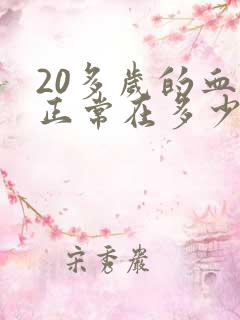 20多歲的血
正常在多少
宋秀嚴